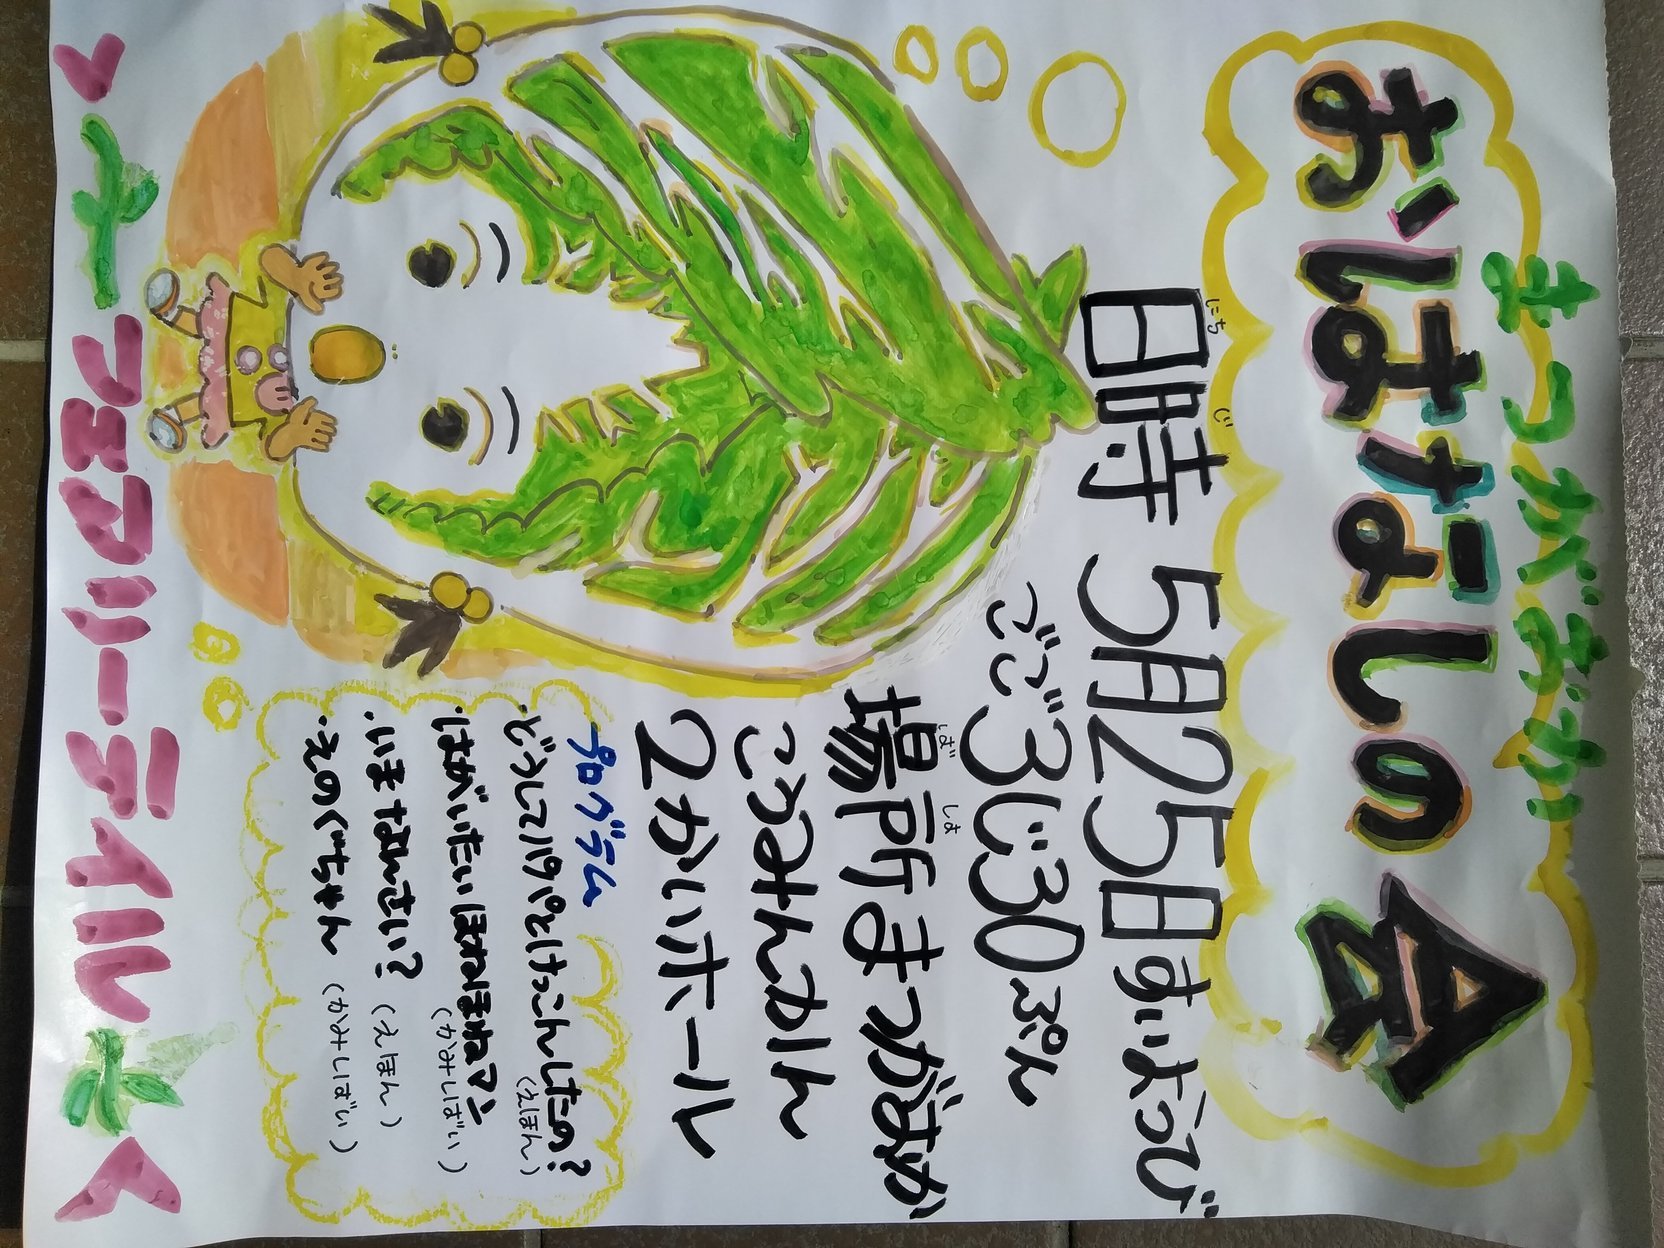 まつがおか
おはなしの会
にちじ
日時 5月25日すいようび
ごご3じ30ぷん
ばしょ
場所 まつがおか
こうみんかん
2かいホール
プログラム
・どうしてパパとけっこんしたの?
(えほん)
・はがいたい ほねほねマン
(かみしばい)
・いまなんさい? (えほん)
・えのぐちゃん (かみしばい)
フェアリーテイル